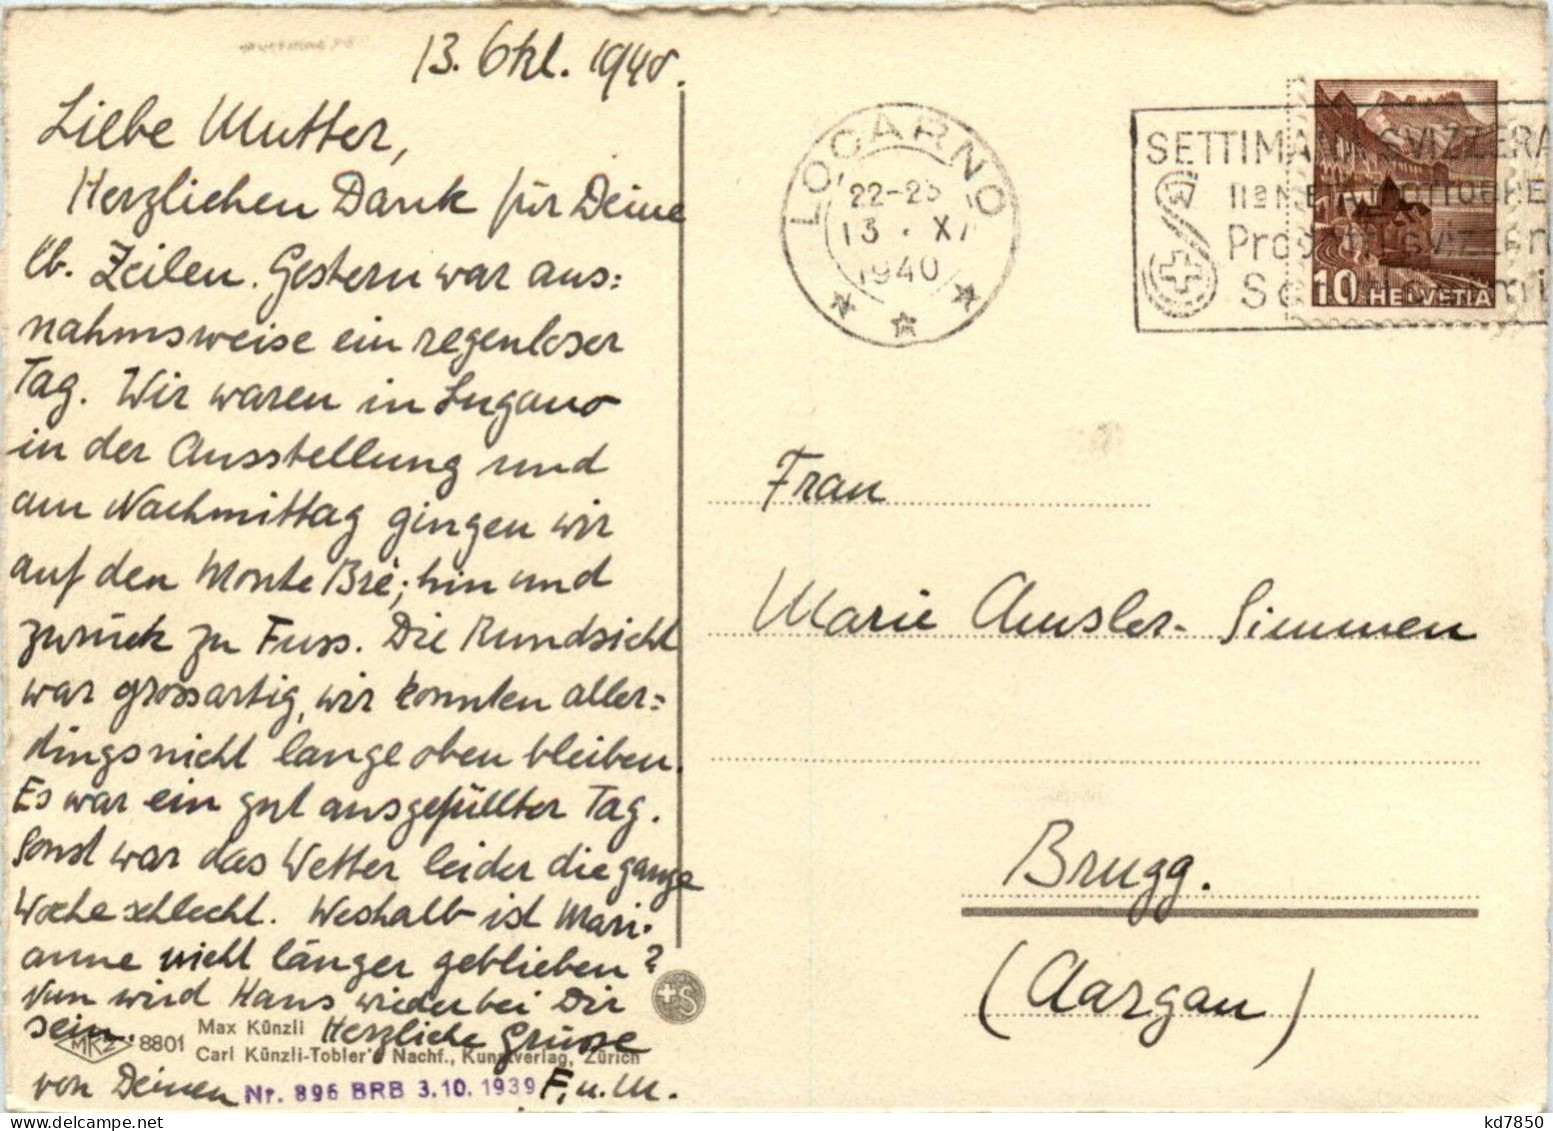 13. Okt. 1940.
Liebe Mutter,
Herzlichen Dank für Deine
lb. Zeilen. Gestern war aus=
nahmsweise ein regenloser
Tag. Wir waren in Lugano
in der Ausstellung und
am Nachmittag gingen wir
auf den Monte Brè; hin und
zurück zu Fuss. Die Rundsicht
war grossartig, wir konnten aller=
dings nicht lange oben bleiben.
Es war ein gut ausgefüllter Tag.
Sonst war das Wetter leider die ganze
Woche schlecht. Weshalb ist Mari-
anne nicht länger geblieben?
Nun wird Hans wieder bei Dir
sein. Herzliche Grüsse
von Deinen F. u. M.
MKZ 8801 Max Künzli
Carl Künzli-Tobler's Nachf., Kunstverlag, Zürich
Nr. 896 BRB 3.10.1939
+S
LOCARNO
22-23
13. X
1940
SETTIMANA SVIZZERA
Sc
10 HELVETIA
Frau
Marie Amsler-Simmen
Brugg.
(Aargau)
kd7850